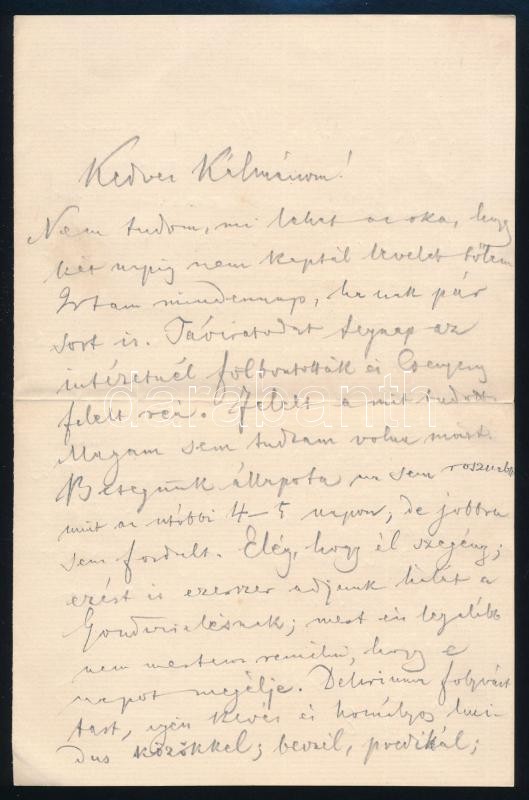 Kedves Kálmánom!
Nem tudom, mi lehet az oka, hogy
két napig nem kaptál levelet tőlem
Irtam mindennap, ha csak pár
sort is. Táviratodat tegnap az
intézetnél felbontották és Csengey
felelt reá. Felelt a mit tudott.
Magam sem tudtam volna mást.
Betegünk állapota ma sem roszabb
mint az utóbbi 4-5 napon, de jobbra
sem fordult. Elég, hogy él szegény;
ezért is ezerszer adjunk hálát a
Gondviselésnek; mert én legalább
nem mertem remélni, hogy e
napot megélje. Deliriuma folyvást
tart, igen kevés és homályos luci-
dus közökkel; beszél, predikál;
darabanth